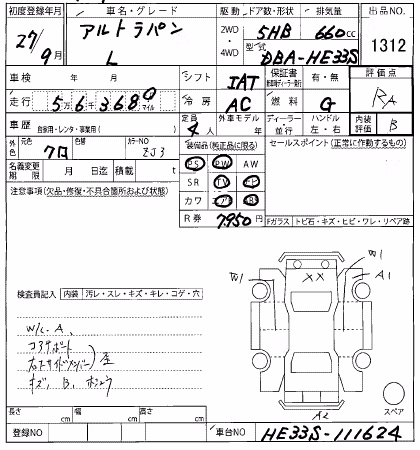 初度登録年月 車名・グレード 駆動 ドア数・形状 排気量 出品NO.
27/9月 アルトラパン L 2WD 4WD 5HB 660cc 1312
型式 DBA-HE33S
車検 年 月 シフト IAT 保証書 有・無 評価点
走行 5万6千3680マイル 冷房 AC 燃料 G RA
車歴 自家用・レンタ・事業用( ) 定員 4人 外車モデル 年 ディーラー 並行 ハンドル 左・右 内装評価 B
外色 元色 クロ 色替 カラーNO ZJ3 装備品(純正品に限る) セールスポイント(正常に作動するもの)
PS PW AW
名義変更期限 月 日迄 積載 t SR TV ナビ
注意事項(欠品・修復・不具合箇所および状態) カワ エアB ABS
R券 7,950円 Fガラス トビ石・キズ・ヒビ・ワレ・リペア跡
W1 XX W1 A1
検査員記入 内装 汚レ・スレ・キズ・キレ・コゲ・穴
W/C.A.
コアサポート
右サイドメンバー 歪
キズ、B、
A2 スペア
長さ cm 幅 cm 高さ cm
登録NO 車台NO HE33S-111624